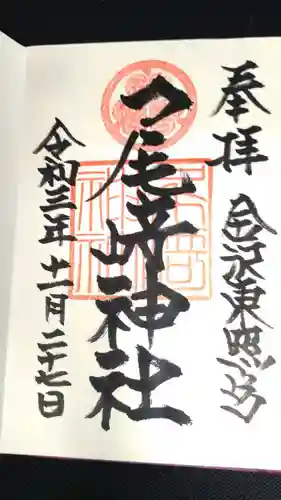 奉拝
金沢東照宮
尾崎神社
令和三年十一月二十七日